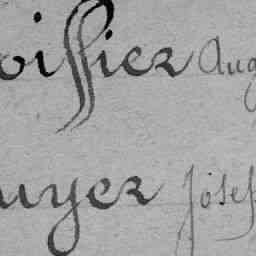 oissier Aug
uyer Josef